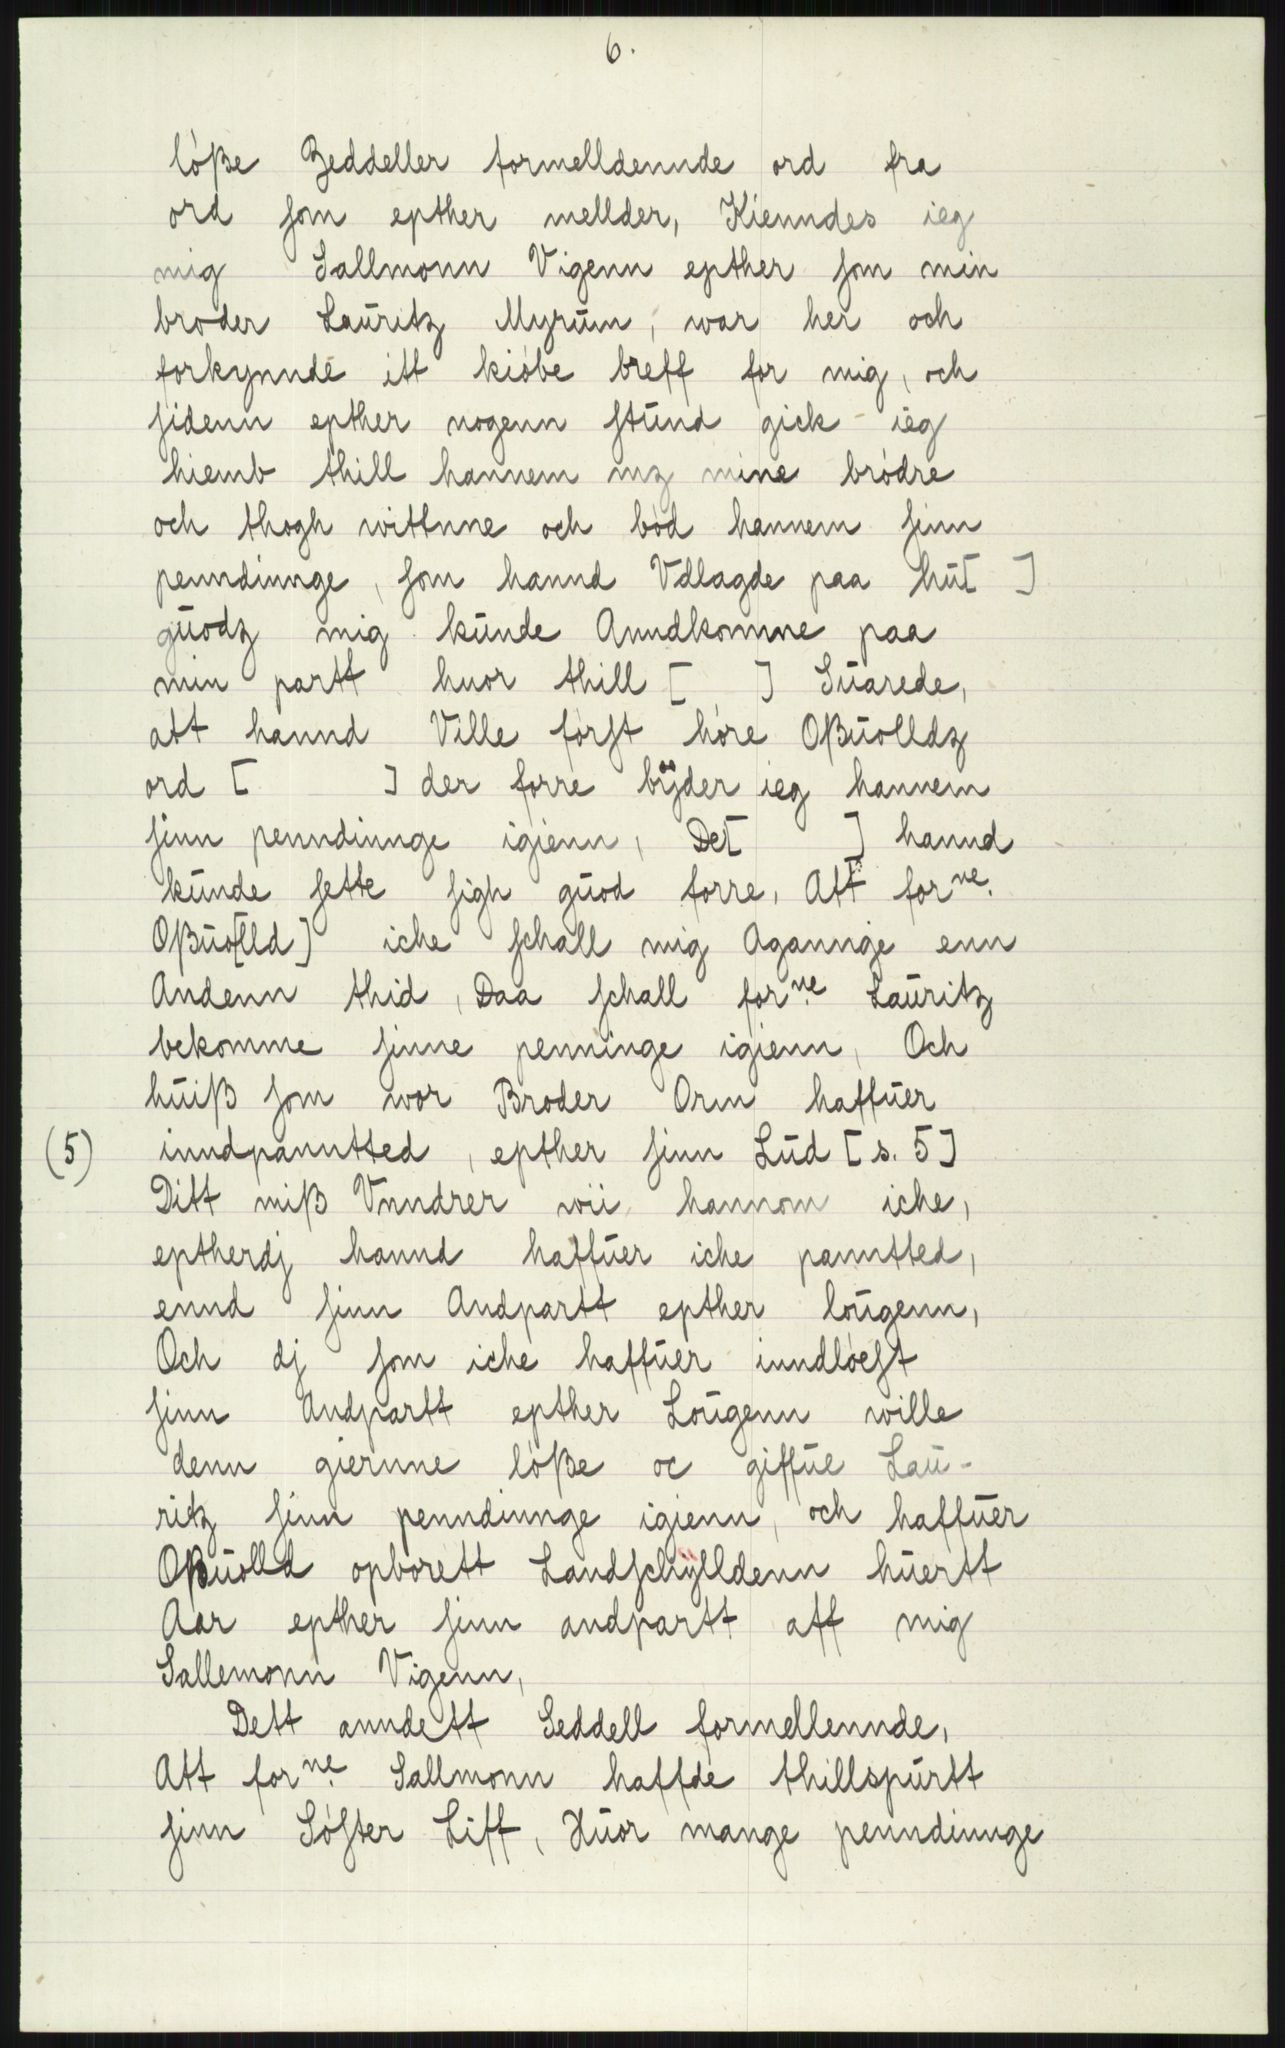 6.
lóße Zeddeller formelldennde ord fra
ord som epther mellder, Kienndes ieg
mig Sallmonn Vigenn epther som min
broder Laŭritz Myrŭm, war her och
forkynnde itt kióbe breff for mig, och
sidenn epther nogenn stŭnd gick ieg
hiemb thill hannem mz mine bródre
och thogh wittnne och bód hannem sinn
penndinnge, som hannd Vdlagde paa hŭ[ ]
gŭodz mig kŭnde Anndkomne paa
min partt huor thill [ ] Sŭarede,
att hannd Ville fórst hóre Oßŭolldz
ord [ ] der forre bÿder ieg hannem
sinn penndinnge igienn, De[ ] hannd
kŭnde sette sigh gŭod forre, Att forne.
Oßŭo[lld] iche schall mig Agannge enn
Andenn thid, Daa schall forne. Laŭritz
bekomme sinne penninge igienn, Och
hŭiß som wor Broder Orm haffŭer
(5) inndpanntted, epther sinn Lŭd [s. 5]
Ditt miß Vnndrer wii hannom iche,
eptherdj hannd haffŭer iche panntted,
ennd sinn Andpartt epther loŭgenn,
Och dj som iche haffŭer inndlóest
sinn Andpartt epther Loŭgenn wille
denn giernne lóße oc giffŭe Laŭ-
ritz sinn penndinnge igienn, och haffŭer
Oßŭolld opborett Landschÿlldenn hŭertt
Aar epther sinn andpartt aff mig
Sallemonn Vigenn,
Dett anndett Seddell formellennde,
Att forne. Sallmonn haffde thillspŭrtt
sinn Sóster Liff, Hŭor mange penndinnge